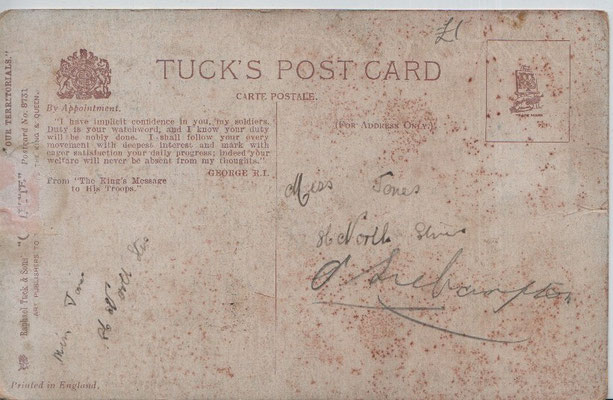 £1
TUCK'S POST CARD
CARTE POSTALE.
(FOR ADDRESS ONLY.)
By Appointment.
"I have implicit confidence in you, my soldiers.
Duty is your watchword, and I know your duty
will be nobly done. I shall follow your every
movement with deepest interest and mark with
eager satisfaction your daily progress; indeed your
welfare will never be absent from my thoughts."
GEORGE R.I.
From "The King's Message
to His Troops."
"OUR TERRITORIALS."
Postcard No. 8731
Raphael Tuck & Sons'
ART PUBLISHERS TO THE KING & QUEEN.
Miss Jones
86 North
Miss
86 North
Printed in England.
TRADE MARK